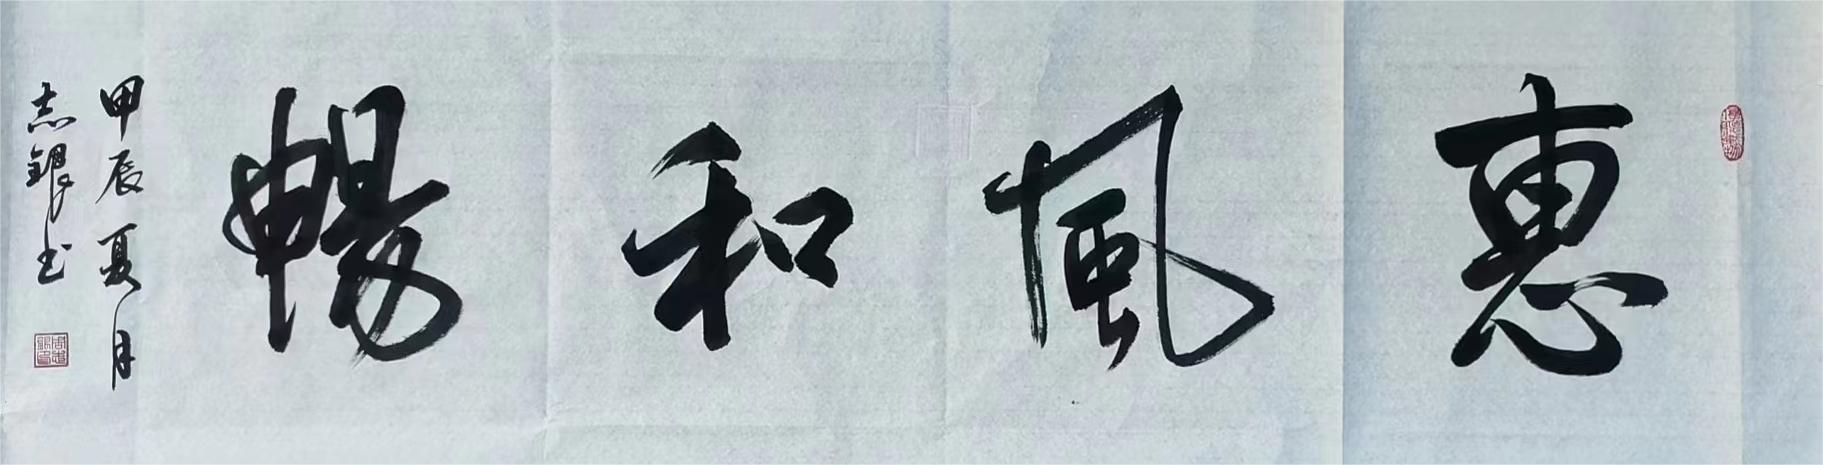 惠風和暢
甲辰夏月
志銀书